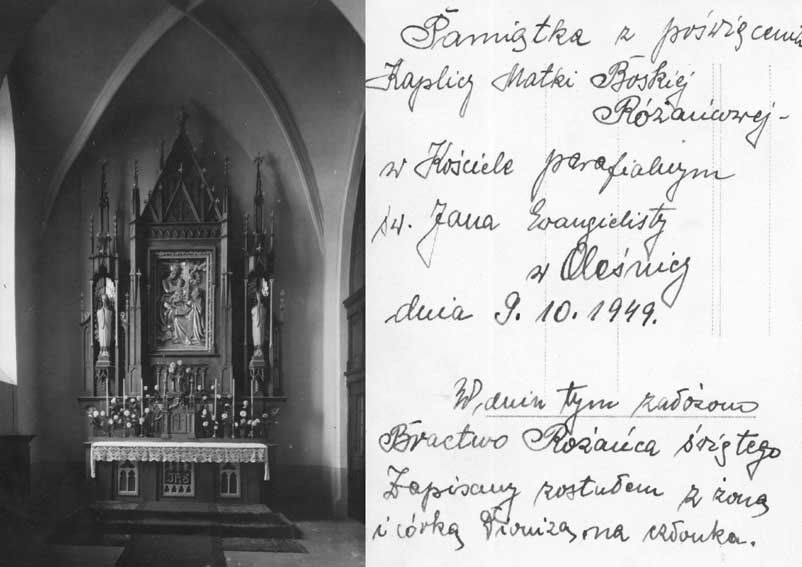 IHS
Pamiątka z poświęcenia
Kaplicy Matki Boskiej
Różańcowej -
w Kościele parafialnym
św. Jana Ewangielisty
w Oleśnicy
dnia 9. 10. 1949.
W dniu tym założono
Bractwo Różańca świętego
Zapisany zostałem z żoną
i córką Dionizą, na członka.